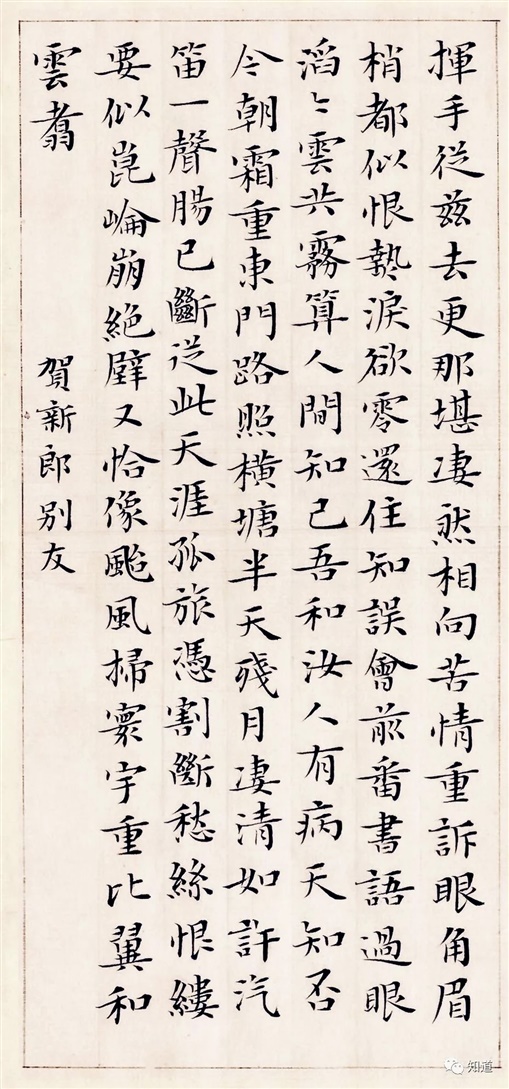 揮手從兹去更那堪凄然相向苦情重訴眼角眉
梢都似恨熱淚欲零還住知誤會前番書語過眼
滔〻雲共霧算人間知己吾和汝人有病天知否
今朝霜重東門路照橫塘半天殘月凄清如許汽
笛一聲腸已斷從此天涯孤旅憑割斷愁絲恨縷
要似崑崘崩絕壁又恰像颱風掃寰宇重比翼和
雲翥
賀新郎別友
知道